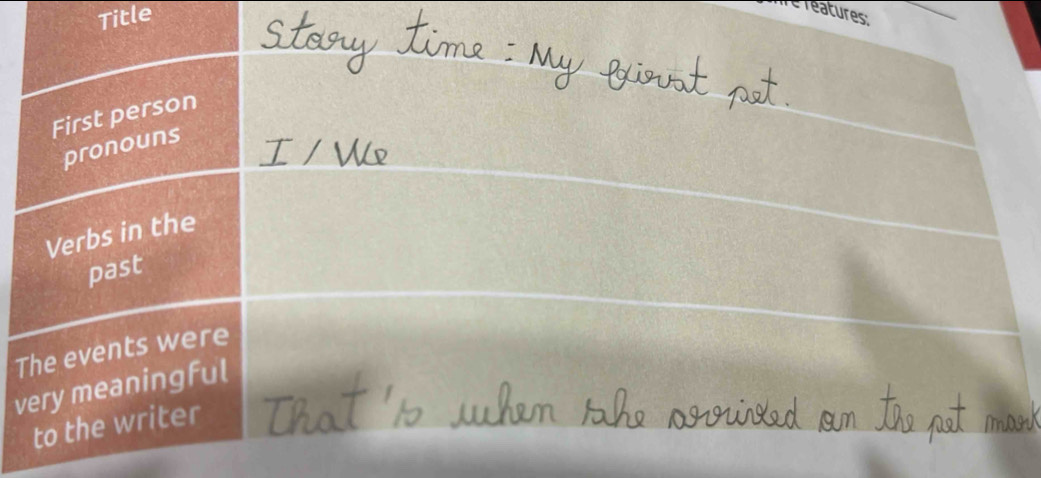 features:
Title
Story time: My
pet.
First person
pronouns
I / We
Verbs in the
past
The events were
very meaningful
to the writer
That's when she arrived on the pet